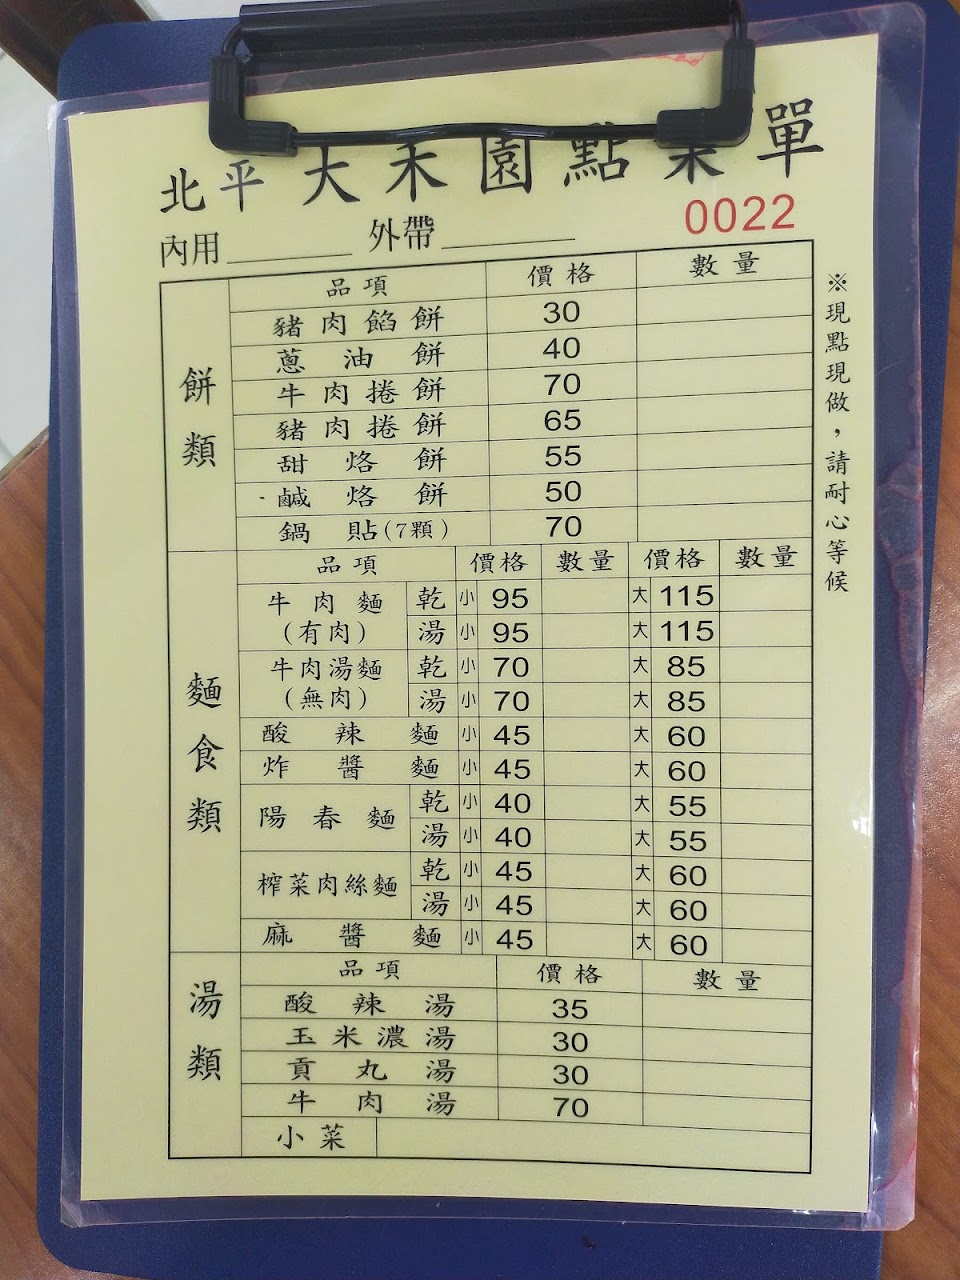 北平大禾園點菜單
0022
內用 外帶
※現點現做，請耐心等候
餅類
品項 價格 數量
豬肉餡餅 30
蔥油餅 40
牛肉捲餅 70
豬肉捲餅 65
甜烙餅 55
鹹烙餅 50
鍋貼(7顆) 70
麵食類
品項 價格 數量 價格 數量
牛肉麵(有肉) 乾 小 95 大 115
湯 小 95 大 115
牛肉湯麵(無肉) 乾 小 70 大 85
湯 小 70 大 85
酸辣麵 小 45 大 60
炸醬麵 小 45 大 60
陽春麵 乾 小 40 大 55
湯 小 40 大 55
榨菜肉絲麵 乾 小 45 大 60
湯 小 45 大 60
麻醬麵 小 45 大 60
湯類
品項 價格 數量
酸辣湯 35
玉米濃湯 30
貢丸湯 30
牛肉湯 70
小菜